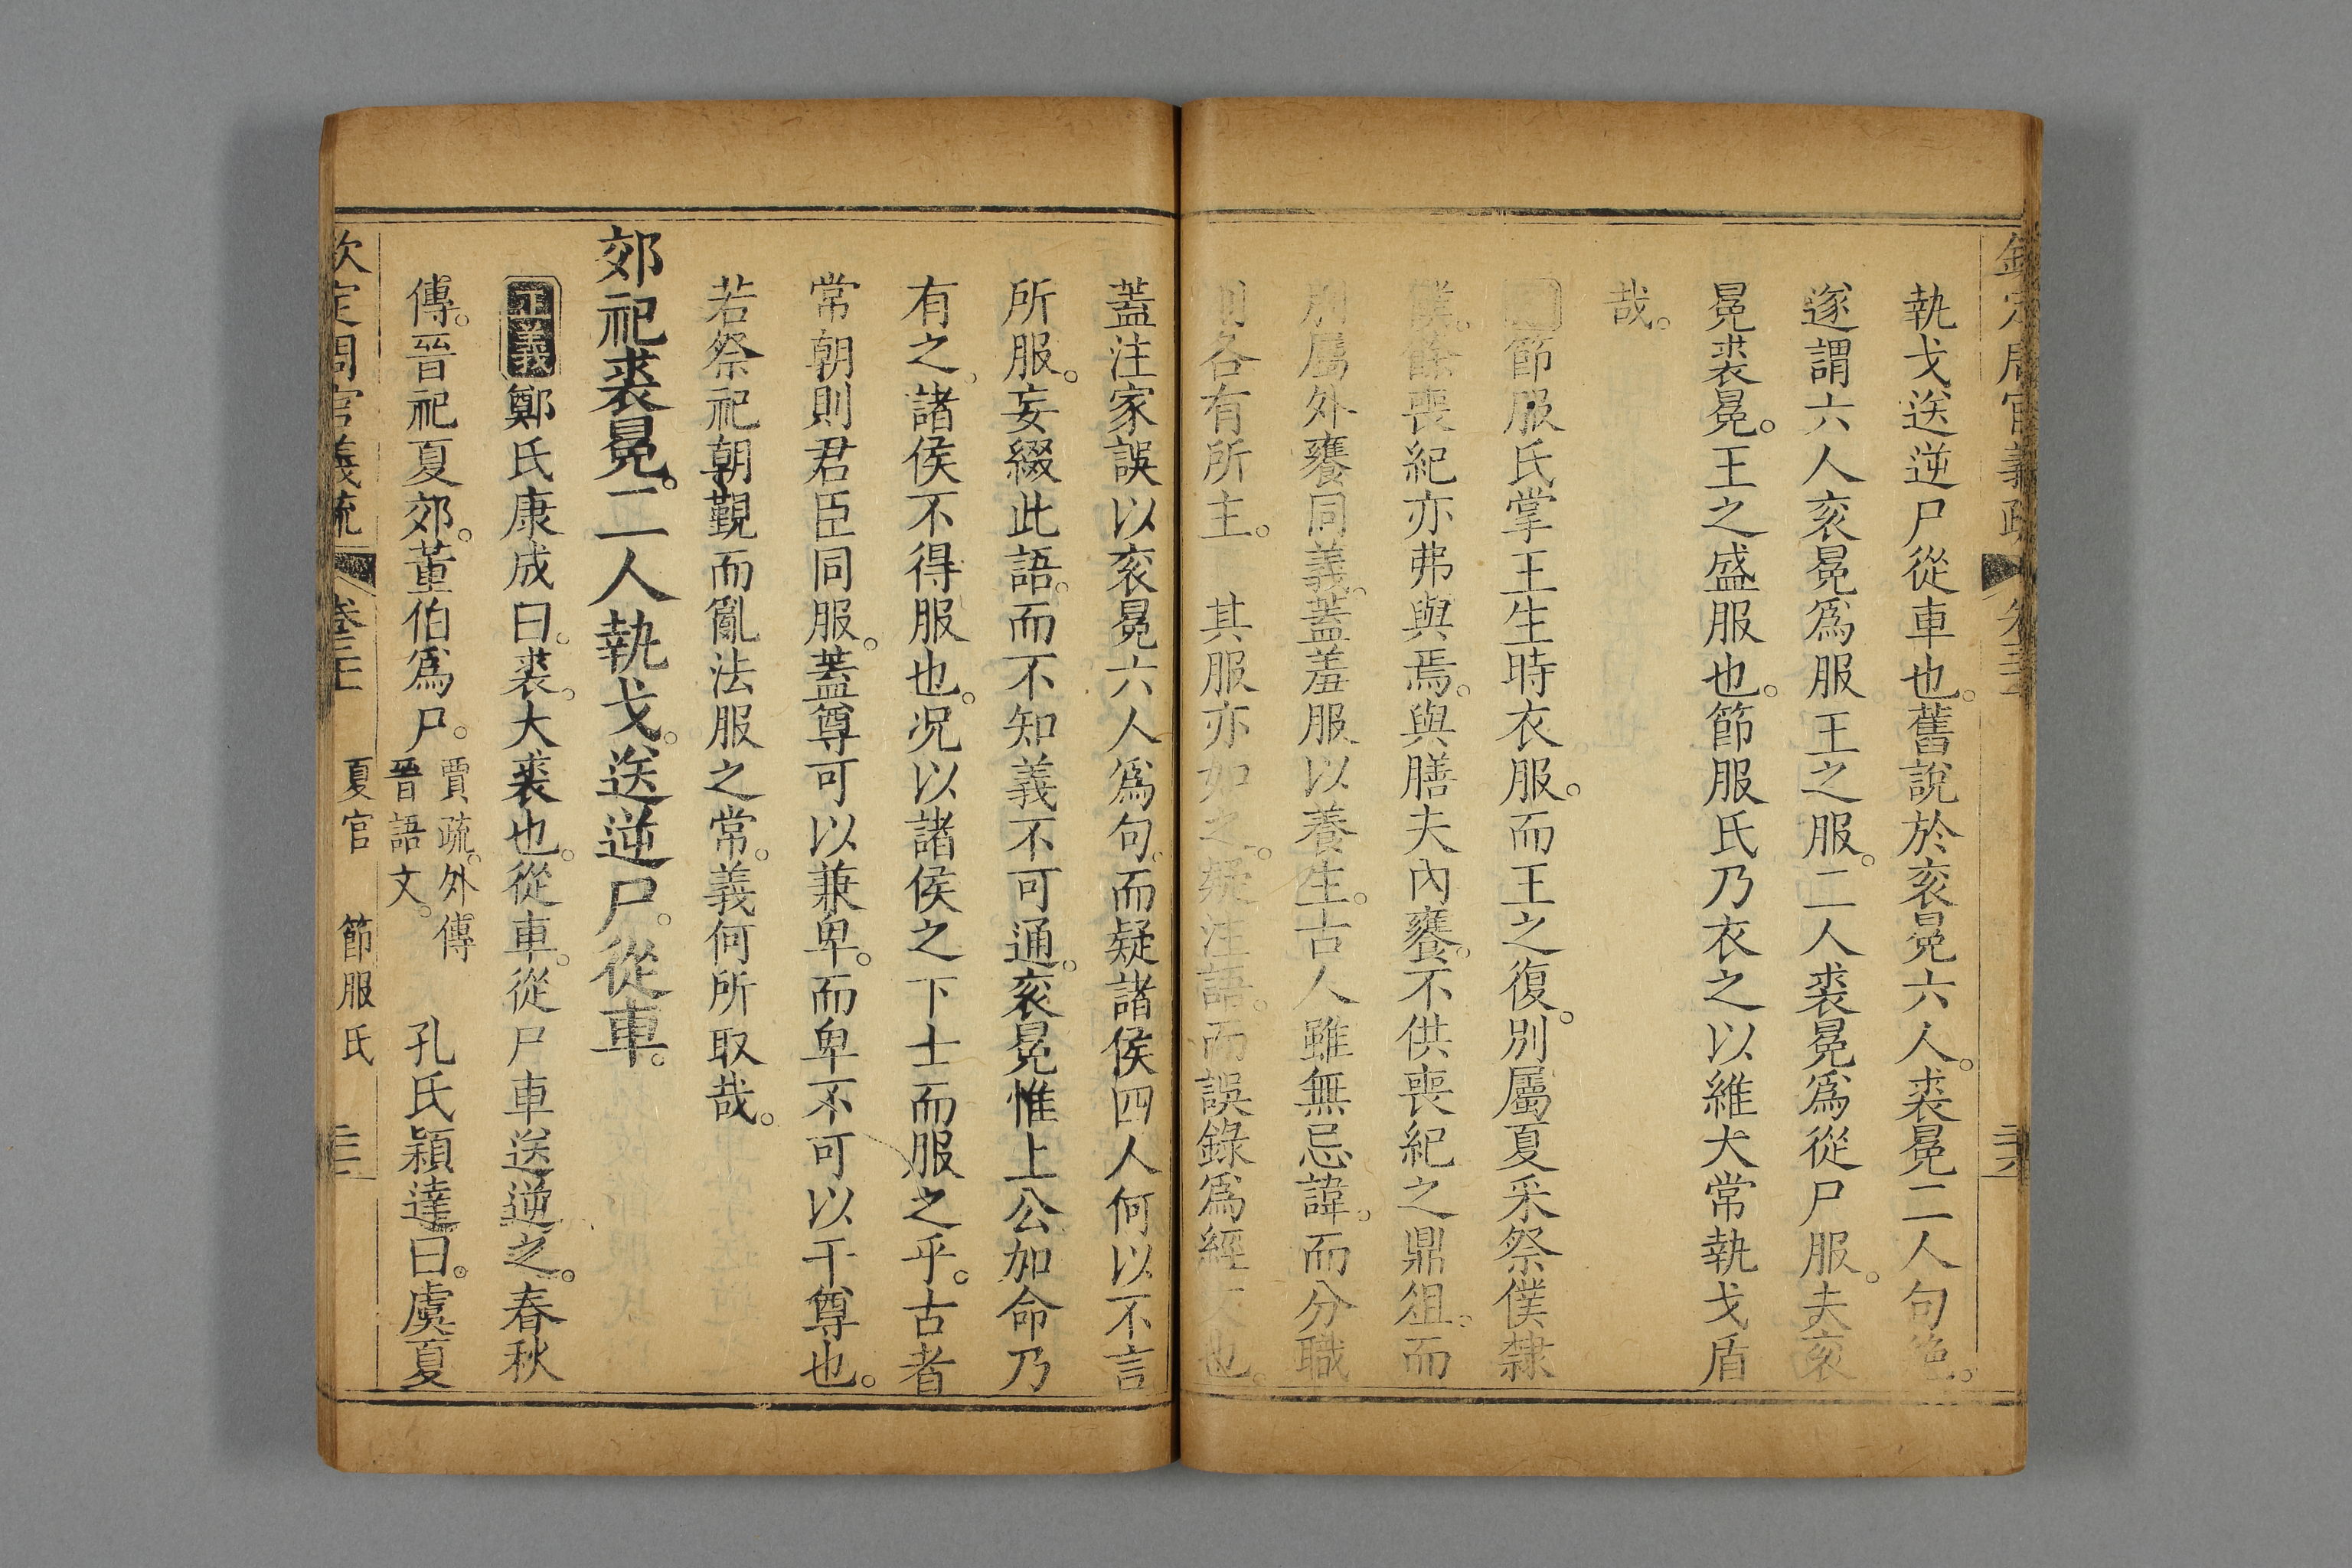 欽定周官義疏 卷三十 二十六
執戈送逆尸從車也。舊說於衮冕六人。裘冕二人句絶。
遂謂六人衮冕爲服王之服。二人裘冕爲從尸服。夫衮
冕裘冕。王之盛服也。節服氏乃衣之以維大常執戈盾
哉。
節服氏掌王生時衣服。而王之復。別屬夏采祭僕隸
僕。餘喪紀亦弗與焉。與膳夫內饔。不供喪紀之鼎俎。而
別屬外饔同義。蓋羞服以養生。古人雖無忌諱。而分職
則各有所主。其服亦如之。疑注語。而誤錄爲經文也。
蓋注家誤以衮冕六人爲句。而疑諸侯四人何以不言
所服。妄綴此語。而不知義不可通。衮冕惟上公加命乃
有之。諸侯不得服也。况以諸侯之下士而服之乎。古者
常朝則君臣同服。蓋尊可以兼卑。而卑不可以干尊也。
若祭祀朝覲而亂法服之常。義何所取哉。
郊祀裘冕。二人執戈。送逆尸。從車。
正義鄭氏康成曰。裘。大裘也。從車。從尸車送逆之。春秋
傳。晉祀夏郊。董伯爲尸。賈疏。外傳晉語文。 孔氏穎達曰。虞夏
欽定周官義疏 卷三十 夏官 節服氏 二十一